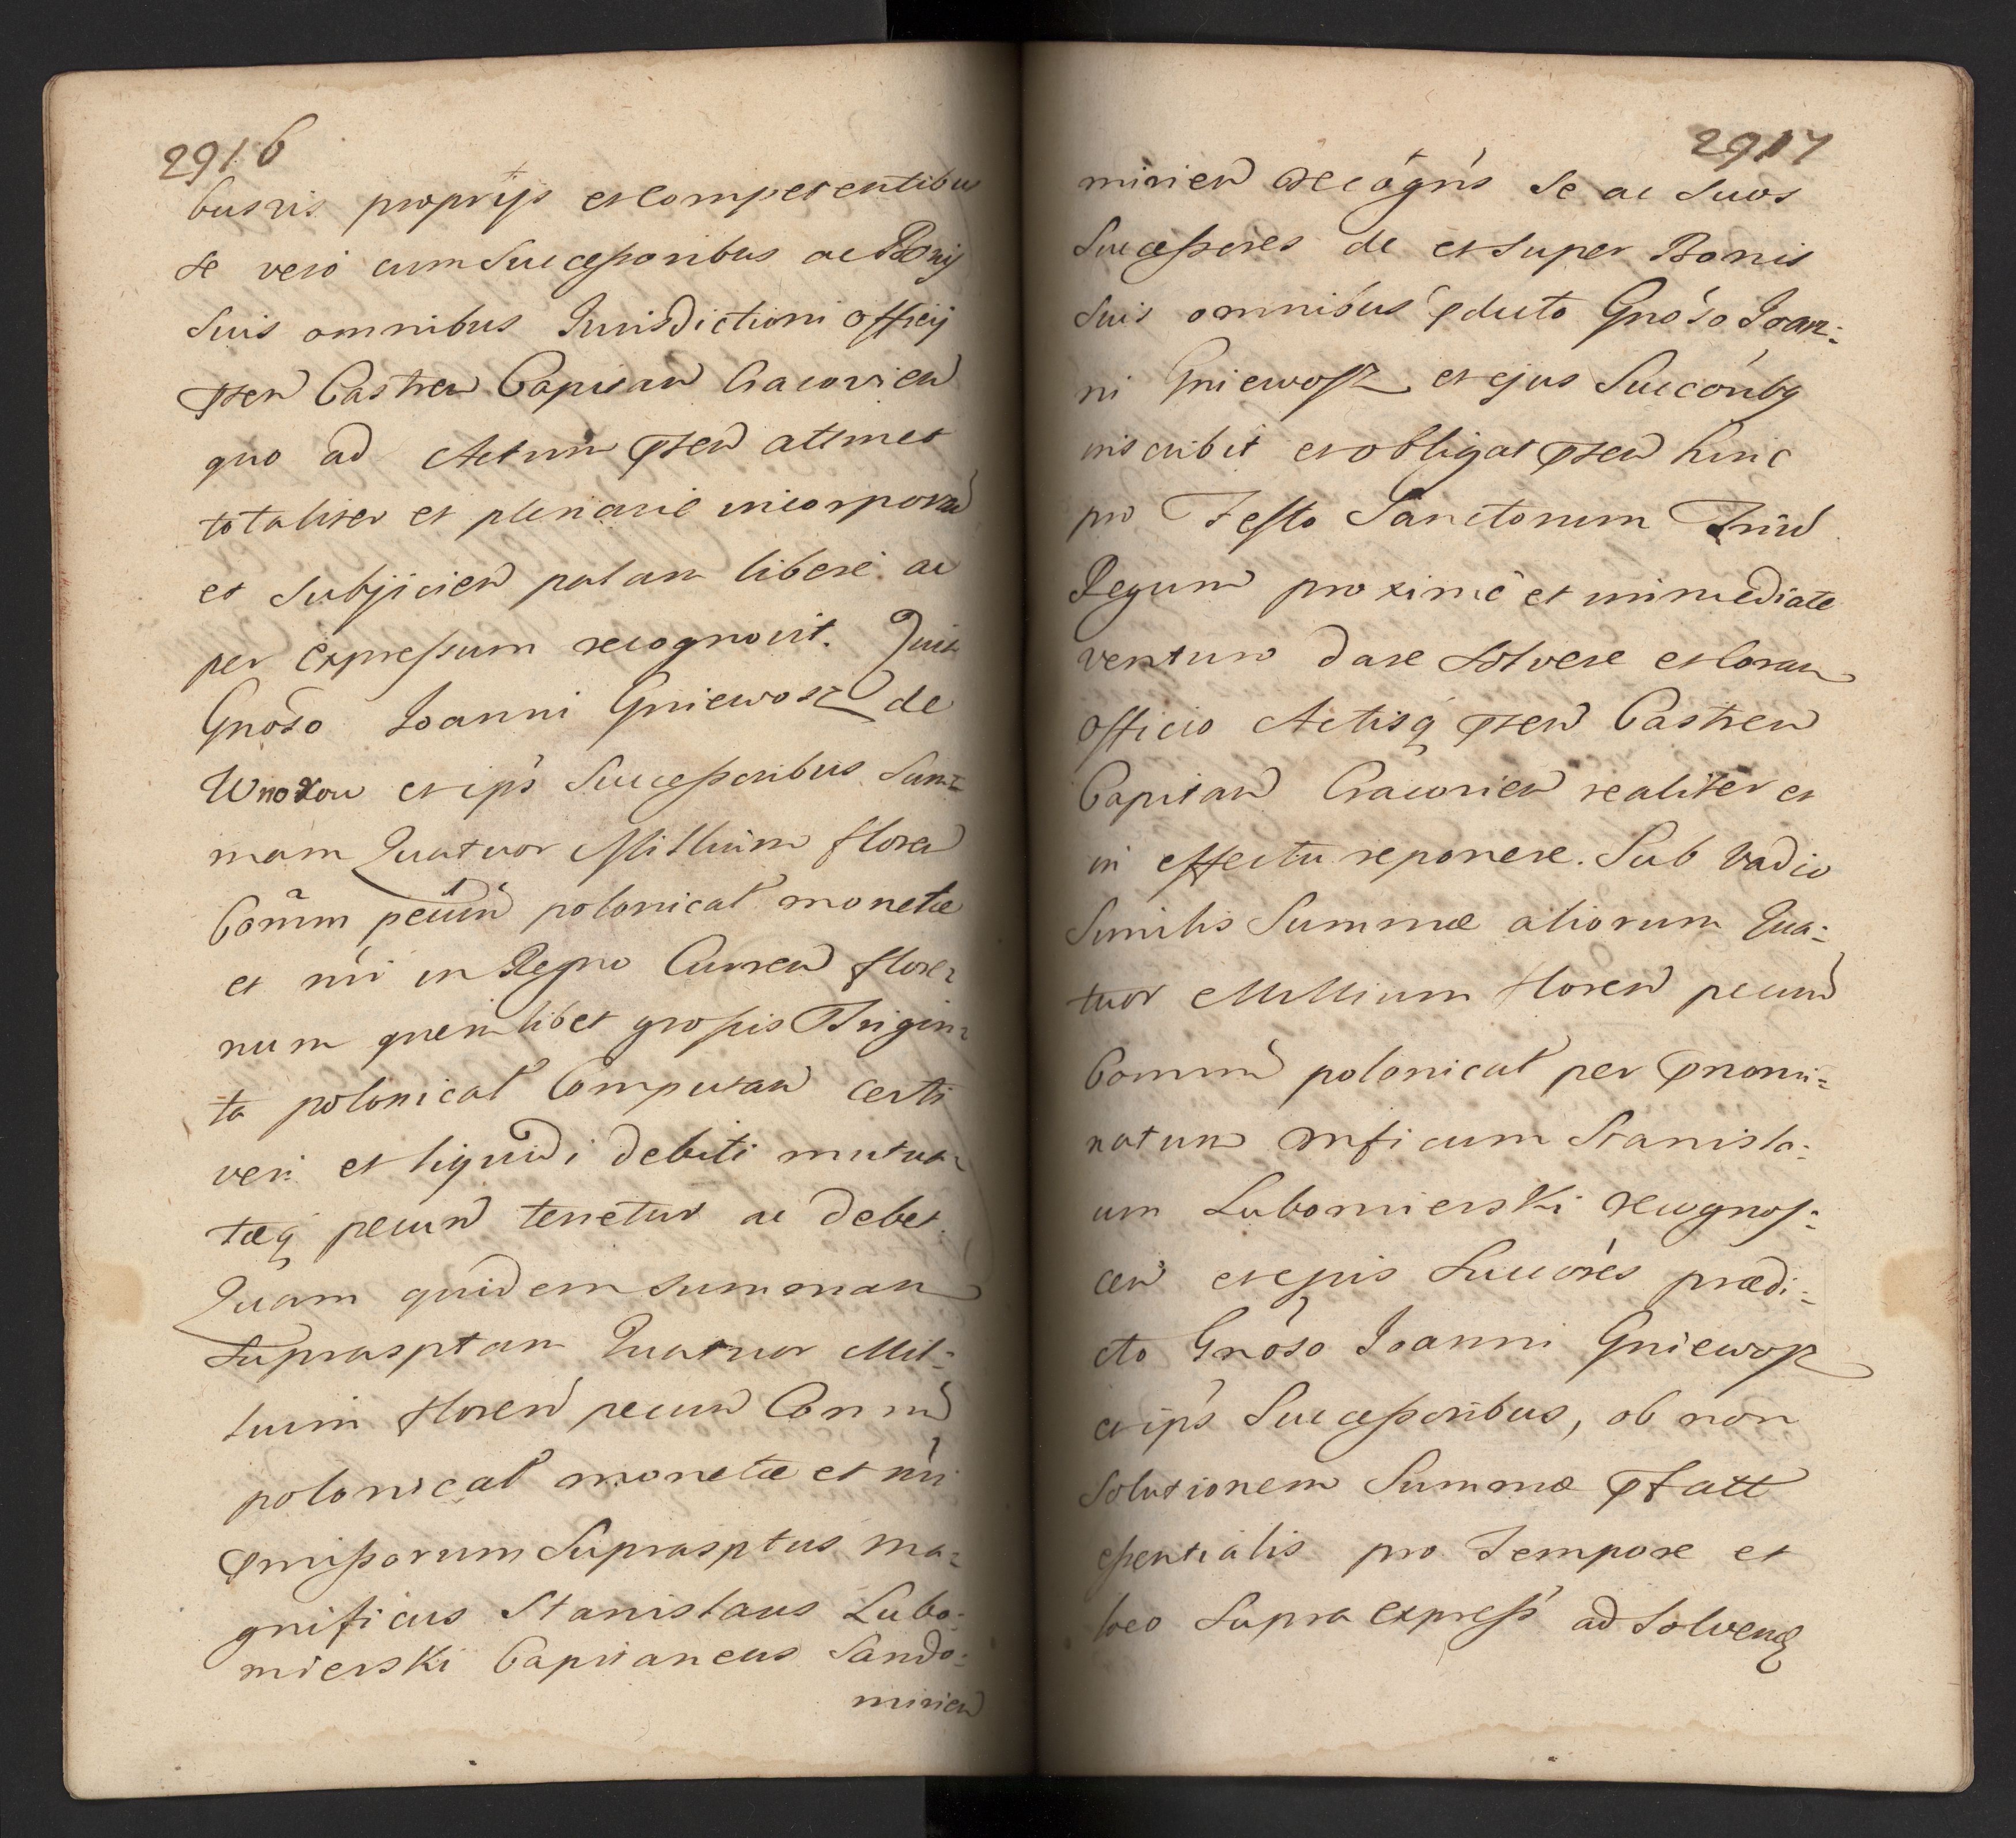 2916
busvis proprijs et competentibus
se vero cum Successoribus ac Bonis
Suis omnibus Jurisdictioni Officij
pñten Castren Capitan Cracovien
quo ad Actum pñten attinet
totaliter et plenarie incorporañ
et Subjicien palam libere ac
per Expressum recognovit. Quia
Gnoso Joanni Gniewosz de
et ips Successoribus Sum=
mam Quatuor Millium floren
Comm pecun polonical monetæ
et nri in Regno Curren flore=
num quemlibet grossis Trigin=
ta polonical Computan certi
veri et liquidi debiti mutua=
tæq pecun tenetur ac debet.
Quam quidem Summam
Suprasptam Quatuor Mil=
lium floren pecun Comm
polonical monetæ et nri
pmissorum Suprasptus Ma=
gnificus Stanislaus Lubo=
mierski Capitaneus Sando=
mirien
2917
mirien recogns Se ac Suos
Successores de et Super Bonis
Suis omnibus pducto Gnoso Joan=
ni Gniewosz et ejus Succoribq
inscribit et obligat pñten hinc
pro Festo Sanctorum Trium
Regum proxime et immediate
venturo dare Solvere et Coram
Officio Actisq pñten Castren
Capitan Cracovien realiter et
in effectu reponere. Sub Vadio
Similis Summæ aliorum Qua=
tuor Millium floren pecun
Commu polonical per pnomi=
natum Mnficum Stanisla=
um Lubomierski recognos=
cen et ejus Succores prædi=
cto Gnoso Joanni Gniewosz
et ips Successoribus, ob non
Solutionem Summæ pfatt
essentialis pro Tempore et
loco Supra express ad Solvend